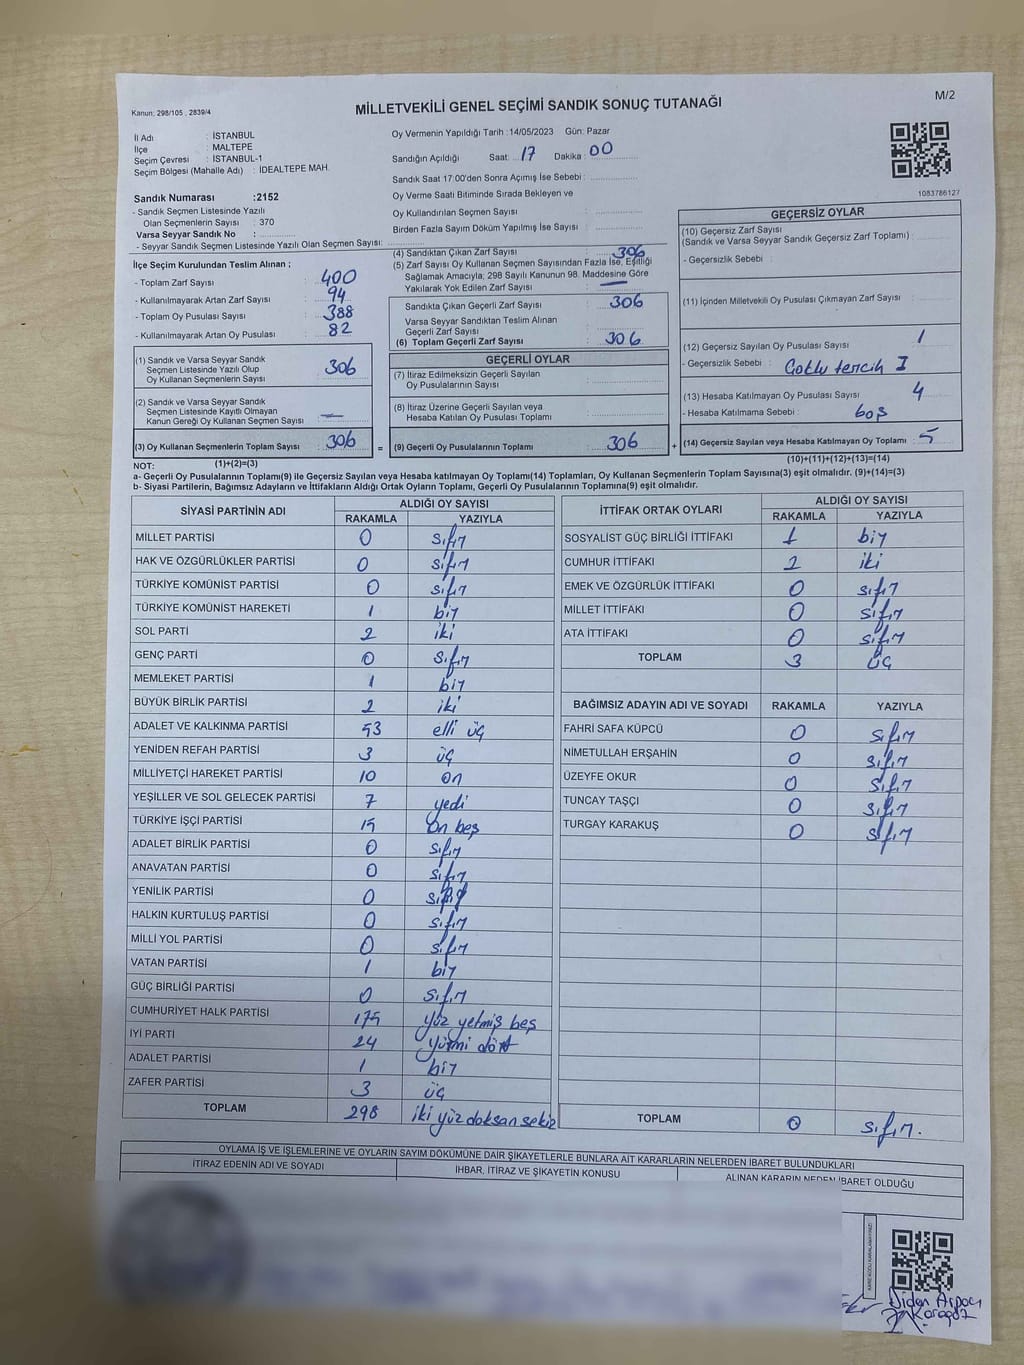 Kanun; 298/105 , 2839/4
MİLLETVEKİLİ GENEL SEÇİMİ SANDIK SONUÇ TUTANAĞI
M/2
İl Adı : İSTANBUL
İlçe : MALTEPE
Seçim Çevresi : İSTANBUL-1
Seçim Bölgesi (Mahalle Adı) : İDEALTEPE MAH.
Oy Vermenin Yapıldığı Tarih :14/05/2023 Gün: Pazar
Sandığın Açıldığı Saat: 17 Dakika : 00
Sandık Saat 17:00'den Sonra Açımış İse Sebebi :
Oy Verme Saati Bitiminde Sırada Bekleyen ve
Oy Kullandırılan Seçmen Sayısı :
Birden Fazla Sayım Döküm Yapılmış İse Sayısı :
1083786127
Sandık Numarası :2152
- Sandık Seçmen Listesinde Yazılı
Olan Seçmenlerin Sayısı : 370
Varsa Seyyar Sandık No :
- Seyyar Sandık Seçmen Listesinde Yazılı Olan Seçmen Sayısı:
İlçe Seçim Kurulundan Teslim Alınan ;
- Toplam Zarf Sayısı : 400
- Kullanılmayarak Artan Zarf Sayısı : 94
- Toplam Oy Pusulası Sayısı : 388
- Kullanılmayarak Artan Oy Pusulası : 82
(1) Sandık ve Varsa Seyyar Sandık
Seçmen Listesinde Yazılı Olup
Oy Kullanan Seçmenlerin Sayısı : 306
(2) Sandık ve Varsa Seyyar Sandık
Seçmen Listesinde Kayıtlı Olmayan
Kanun Gereği Oy Kullanan Seçmen Sayısı : —
(3) Oy Kullanan Seçmenlerin Toplam Sayısı : 306 =
(4) Sandıktan Çıkan Zarf Sayısı : 306
(5) Zarf Sayısı Oy Kullanan Seçmen Sayısından Fazla İse, Eşitliği
Sağlamak Amacıyla; 298 Sayılı Kanunun 98. Maddesine Göre
Yakılarak Yok Edilen Zarf Sayısı : —
Sandıkta Çıkan Geçerli Zarf Sayısı : 306
Varsa Seyyar Sandıktan Teslim Alınan
Geçerli Zarf Sayısı :
(6) Toplam Geçerli Zarf Sayısı : 306
GEÇERLİ OYLAR
(7) İtiraz Edilmeksizin Geçerli Sayılan
Oy Pusulalarının Sayısı :
(8) İtiraz Üzerine Geçerli Sayılan veya
Hesaba Katılan Oy Pusulası Toplamı :
(9) Geçerli Oy Pusulalarının Toplamı : 306 +
GEÇERSİZ OYLAR
(10) Geçersiz Zarf Sayısı
(Sandık ve Varsa Seyyar Sandık Geçersiz Zarf Toplamı) :
- Geçersizlik Sebebi :
(11) İçinden Milletvekili Oy Pusulası Çıkmayan Zarf Sayısı :
(12) Geçersiz Sayılan Oy Pusulası Sayısı : 1
- Geçersizlik Sebebi : Çoklu tercih I
(13) Hesaba Katılmayan Oy Pusulası Sayısı : 4
- Hesaba Katılmama Sebebi : boş
(14) Geçersiz Sayılan veya Hesaba Katılmayan Oy Toplamı : 5
NOT: (1)+(2)=(3) (10)+(11)+(12)+(13)=(14)
a- Geçerli Oy Pusulalarının Toplamı(9) ile Geçersiz Sayılan veya Hesaba katılmayan Oy Toplamı(14) Toplamları, Oy Kullanan Seçmenlerin Toplam Sayısına(3) eşit olmalıdır. (9)+(14)=(3)
b- Siyasi Partilerin, Bağımsız Adayların ve İttifakların Aldığı Ortak Oyların Toplamı, Geçerli Oy Pusulalarının Toplamına(9) eşit olmalıdır.
SİYASİ PARTİNİN ADI ALDIĞI OY SAYISI
RAKAMLA YAZIYLA
MİLLET PARTİSİ 0 sıfır
HAK VE ÖZGÜRLÜKLER PARTİSİ 0 sıfır
TÜRKİYE KOMÜNİST PARTİSİ 0 sıfır
TÜRKİYE KOMÜNİST HAREKETİ 1 bir
SOL PARTİ 2 iki
GENÇ PARTİ 0 sıfır
MEMLEKET PARTİSİ 1 bir
BÜYÜK BİRLİK PARTİSİ 2 iki
ADALET VE KALKINMA PARTİSİ 53 elli üç
YENİDEN REFAH PARTİSİ 3 üç
MİLLİYETÇİ HAREKET PARTİSİ 10 on
YEŞİLLER VE SOL GELECEK PARTİSİ 7 yedi
TÜRKİYE İŞÇİ PARTİSİ 15 on beş
ADALET BİRLİK PARTİSİ 0 sıfır
ANAVATAN PARTİSİ 0 sıfır
YENİLİK PARTİSİ 0 sıfır
HALKIN KURTULUŞ PARTİSİ 0 sıfır
MİLLİ YOL PARTİSİ 0 sıfır
VATAN PARTİSİ 1 bir
GÜÇ BİRLİĞİ PARTİSİ 0 sıfır
CUMHURİYET HALK PARTİSİ 175 yüz yetmiş beş
İYİ PARTİ 24 yirmi dört
ADALET PARTİSİ 1 bir
ZAFER PARTİSİ 3 üç
TOPLAM 298 iki yüz doksan sekiz
İTTİFAK ORTAK OYLARI ALDIĞI OY SAYISI
RAKAMLA YAZIYLA
SOSYALİST GÜÇ BİRLİĞİ İTTİFAKI 1 bir
CUMHUR İTTİFAKI 2 iki
EMEK VE ÖZGÜRLÜK İTTİFAKI 0 sıfır
MİLLET İTTİFAKI 0 sıfır
ATA İTTİFAKI 0 sıfır
TOPLAM 3 üç
BAĞIMSIZ ADAYIN ADI VE SOYADI RAKAMLA YAZIYLA
FAHRİ SAFA KÜPCÜ 0 sıfır
NİMETULLAH ERŞAHİN 0 sıfır
ÜZEYFE OKUR 0 sıfır
TUNCAY TAŞÇI 0 sıfır
TURGAY KARAKUŞ 0 sıfır
TOPLAM 0 sıfır.
OYLAMA İŞ VE İŞLEMLERİNE VE OYLARIN SAYIM DÖKÜMÜNE DAİR ŞİKAYETLERLE BUNLARA AİT KARARLARIN NELERDEN İBARET BULUNDUKLARI
İTİRAZ EDENİN ADI VE SOYADI İHBAR, İTİRAZ VE ŞİKAYETİN KONUSU ALINAN KARARIN NEDEN İBARET OLDUĞU
KARE KODU KARALAMAYINIZ!